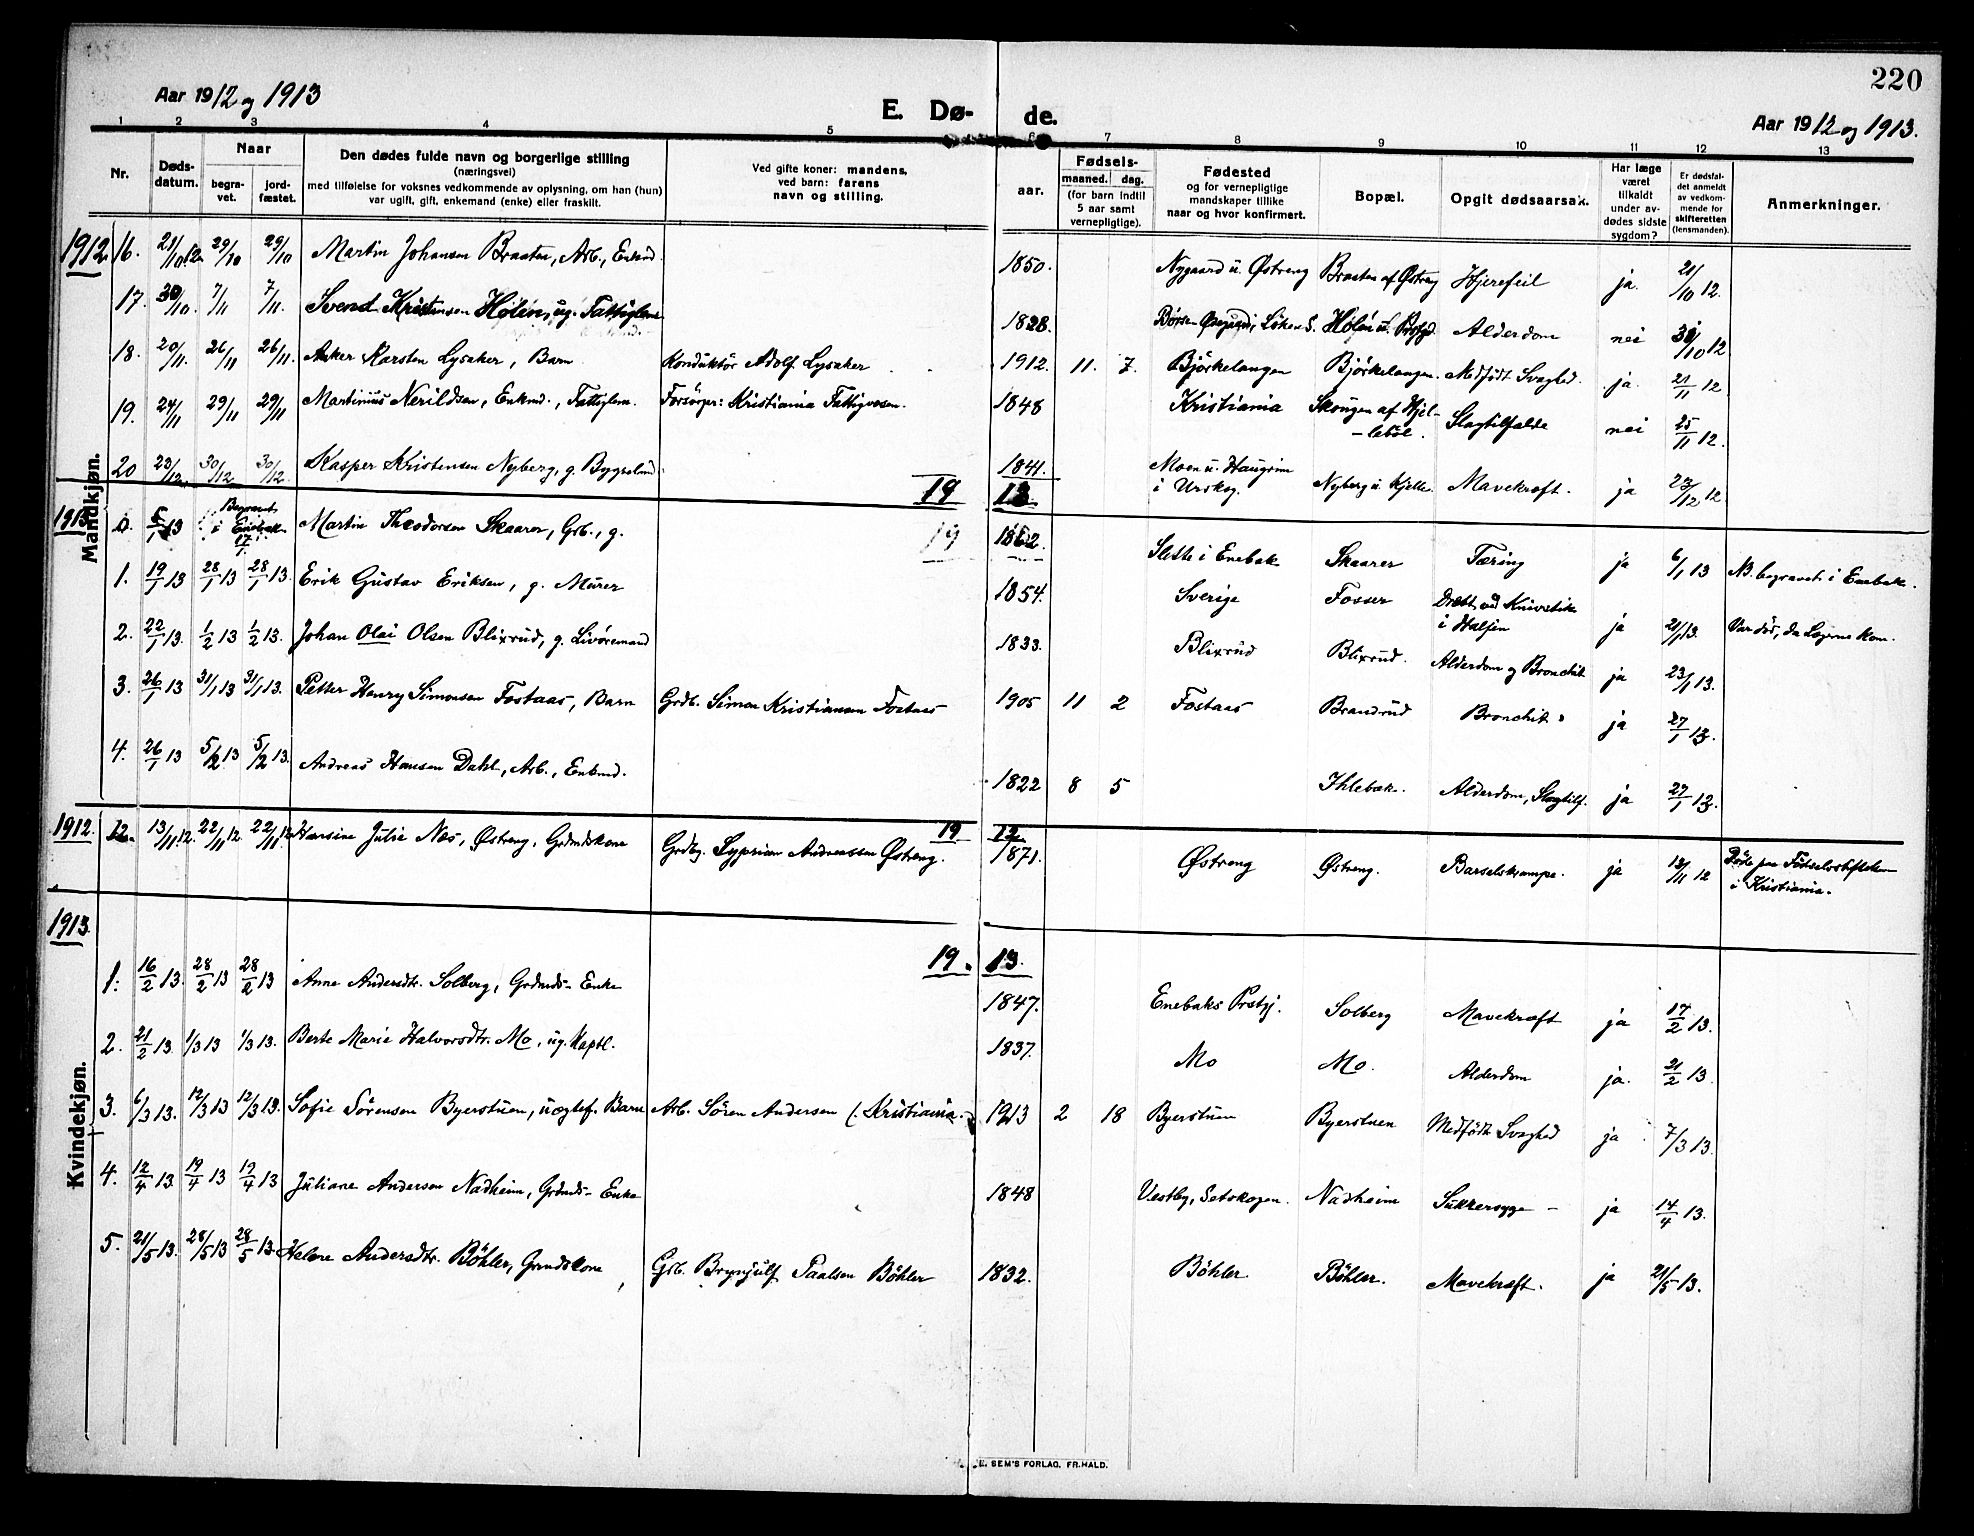 220
Aar 1912 og 1913
E. Dø- de.
Aar 1912 og 1913.
1 2 3 4 5 6 7 8 9 10 11 12 13
Nr.
Døds-
datum.
Naar
begra-
vet.
jord-
fæstet.
Den dødes fulde navn og borgerlige stilling
(næringsvei)
med tilføielse for voksnes vedkommende av oplysning, om han (hun)
var ugift, gift, enkemand (enke) eller fraskilt.
Ved gifte koner: mandens,
ved barn: farens
navn og stilling.
aar.
Fødsels-
maaned. dag.
(for barn indtil
5 aar samt
vernepligtige).
Fødested
og for vernepligtige
mandskaper tillike
naar og hvor konfirmert.
Bopæl.
Opgit dødsaarsak.
Har læge
været
tilkaldt
under av-
dødes sidste
sygdom?
Er dødsfal-
det anmeldt
av vedkom-
mende for
skifteretten
(lensmanden).
Anmerkninger.
Mandkjøn.
1912. 16. 21/10 12. 29/10 29/10 Martin Johansen Braaten, Arb., Enkmd. 1850. Nygaard u. Østreng Braaten af Østreng Hjerefeil ja. 21/10 12.
17. 30/10. 7/11 7/11. Svend Kristensen Hølen, ug. Fattiglem 1828. Hølen u. Alderdom nei 30/10 12
18. 20/11. 26/11 26/11. Anker Karsten Lysaker, Barn Konduktör Adolf Lysaker 1912. 11. 7. Björkelangen Björkelangen. Medfödt Svaghed. ja. 21/11 12.
19. 24/11 29/11 29/11 Martinius Nerildsen, Enkmd., Fattiglem. Forsörger: Kristiania Fattigvæsen. 1848 Kristiania Skougen af Hjel-
-leböl. Slagtilfælde nei 25/11 12.
20 23/12. 30/12 30/12 Kasper Kristensen Nyberg, g. Bygselmd. 1841. Moen u. Haugrim
i Urskog. Nyberg u. Kjelle. Mavekræft. ja 23/12 12
19 13.
1913. 0. 5/1 13 Begravet
i Enebak
17/1. Martin Theodorsen Skaarer, Grb., g. 19 1862. Slette i Enebak Skaarer Tæring ja 6/1 13 NB. begravet i Enebak.
1. 19/1 13 28/1 13 28/1 13. Erik Gustav Eriksen, g. Murer 1854. Sverige Fosser Dræbt ved Knivstik
i Halsen ja 21/1 13. Var död, da Lægerne kom.
2. 22/1 13. 1/2 13 1/2 13. Johan Olai Olsen Blixrud, g. Livöremand 1833. Blixrud Blixrud. Alderdom og Bronchit ja 23/1 13.
3. 26/1 13 31/1 13 31/1 13. Petter Henry Simonsen Fostaas, Barn Grdb. Simon Kristiansen Fostaas 1905 11 2 Fostaas Brandrud Bronchit ja 27/1 13.
4. 26/1 13 5/2 13 5/2 13. Andreas Hansen Dahl, Arb., Enkmd. 1822 8 5 Ihlebæk. Alderdom, Slagtilf. ja 27/1 13.
Kvindekjøn.
19 12.
1912. 12. 13/11 12. 22/11 12. 22/11 12 Julie Næs, Østreng, Grdmdskone Grdbg. Syprian Andreassen Østreng. 1871. Østreng Østreng. Barselskrampe. ja 13/11 12 Döde paa Födselsstiftelsen
i Kristiania.
1913. 19. 13.
1. 16/2 13. 28/2 13 28/2 13 Anne Andersdtr. Solberg, Grdmds- Enke 1847. Enebaks Prstgj. Solberg Mavekræft ja 17/2 13.
2. 21/2 13 1/3 13 1/3 13. Berte Marie Halvorsdtr. Mo, ug. Kaptl. 1837. Mo Mo. Alderdom ja. 21/2 13.
3. 6/3 13. 12/3 13 12/3 13 Sofie Sörensen Byerstuen, uægtef. Barn Arb. Sören Andersen (Kristiania.) 1913 2 18 Byerstuen Byerstuen Medfödt Svaghed ja 7/3 13.
4. 12/4 13. 19/4 13 19/4 13 Juliane Andersen Nadheim, Grdmds- Enke 1848 Vestby, Setskogen. Nadheim Sukkersyge - ja 14/4 13.
5. 21/5 13. 28/5 13 28/5 13. Helene Andersdtr. Böhler, Grmdskone Grb. Brynjulf Paalsen Böhler 1832. Böhler. Böhler. Mavekræft. ja 21/5 13.
E. SEM'S FORLAG, FR.HALD.